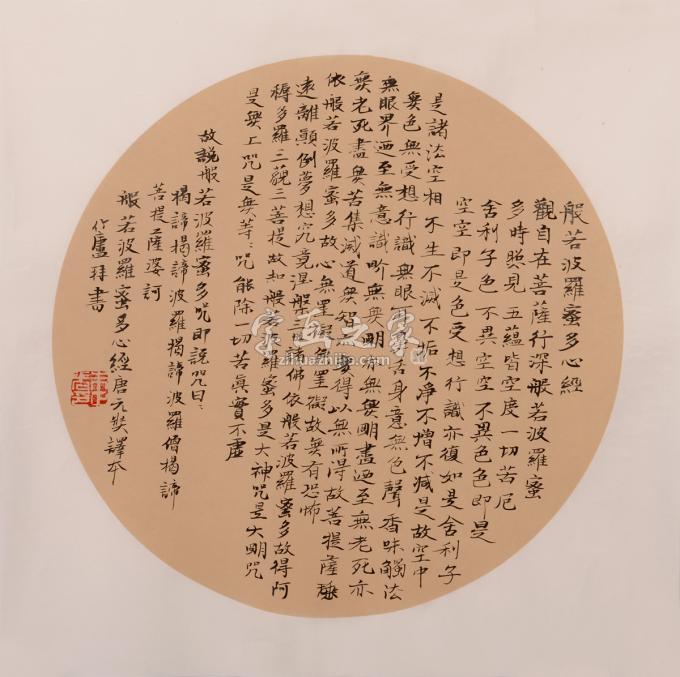 般若波羅蜜多心經
觀自在菩薩行深般若波羅蜜
多時照見五蘊皆空度一切苦厄
舍利子色不異空空不異色色即是
空空即是色受想行識亦復如是舍利子
是諸法空相不生不滅不垢不淨不增不減是故空中
無色無受想行識無眼耳鼻舌身意無色聲香味觸法
無眼界迺至無意識界無無明亦無無明盡迺至無老死亦
無老死盡無苦集滅道無智亦無得以無所得故菩提薩埵
依般若波羅蜜多故心無罣礙無罣礙故無有恐怖
遠離顛倒夢想究竟涅槃三世諸佛依般若波羅蜜多故得阿
耨多羅三藐三菩提故知般若波羅蜜多是大神咒是大明咒
是無上咒是無等〻咒能除一切苦真實不虛
故說般若波羅蜜多咒即說咒曰:
揭諦揭諦波羅揭諦波羅僧揭諦
菩提薩婆訶
般若波羅蜜多心經唐元奘譯本
竹廬拜書
字画之家
zihuazhijia.com